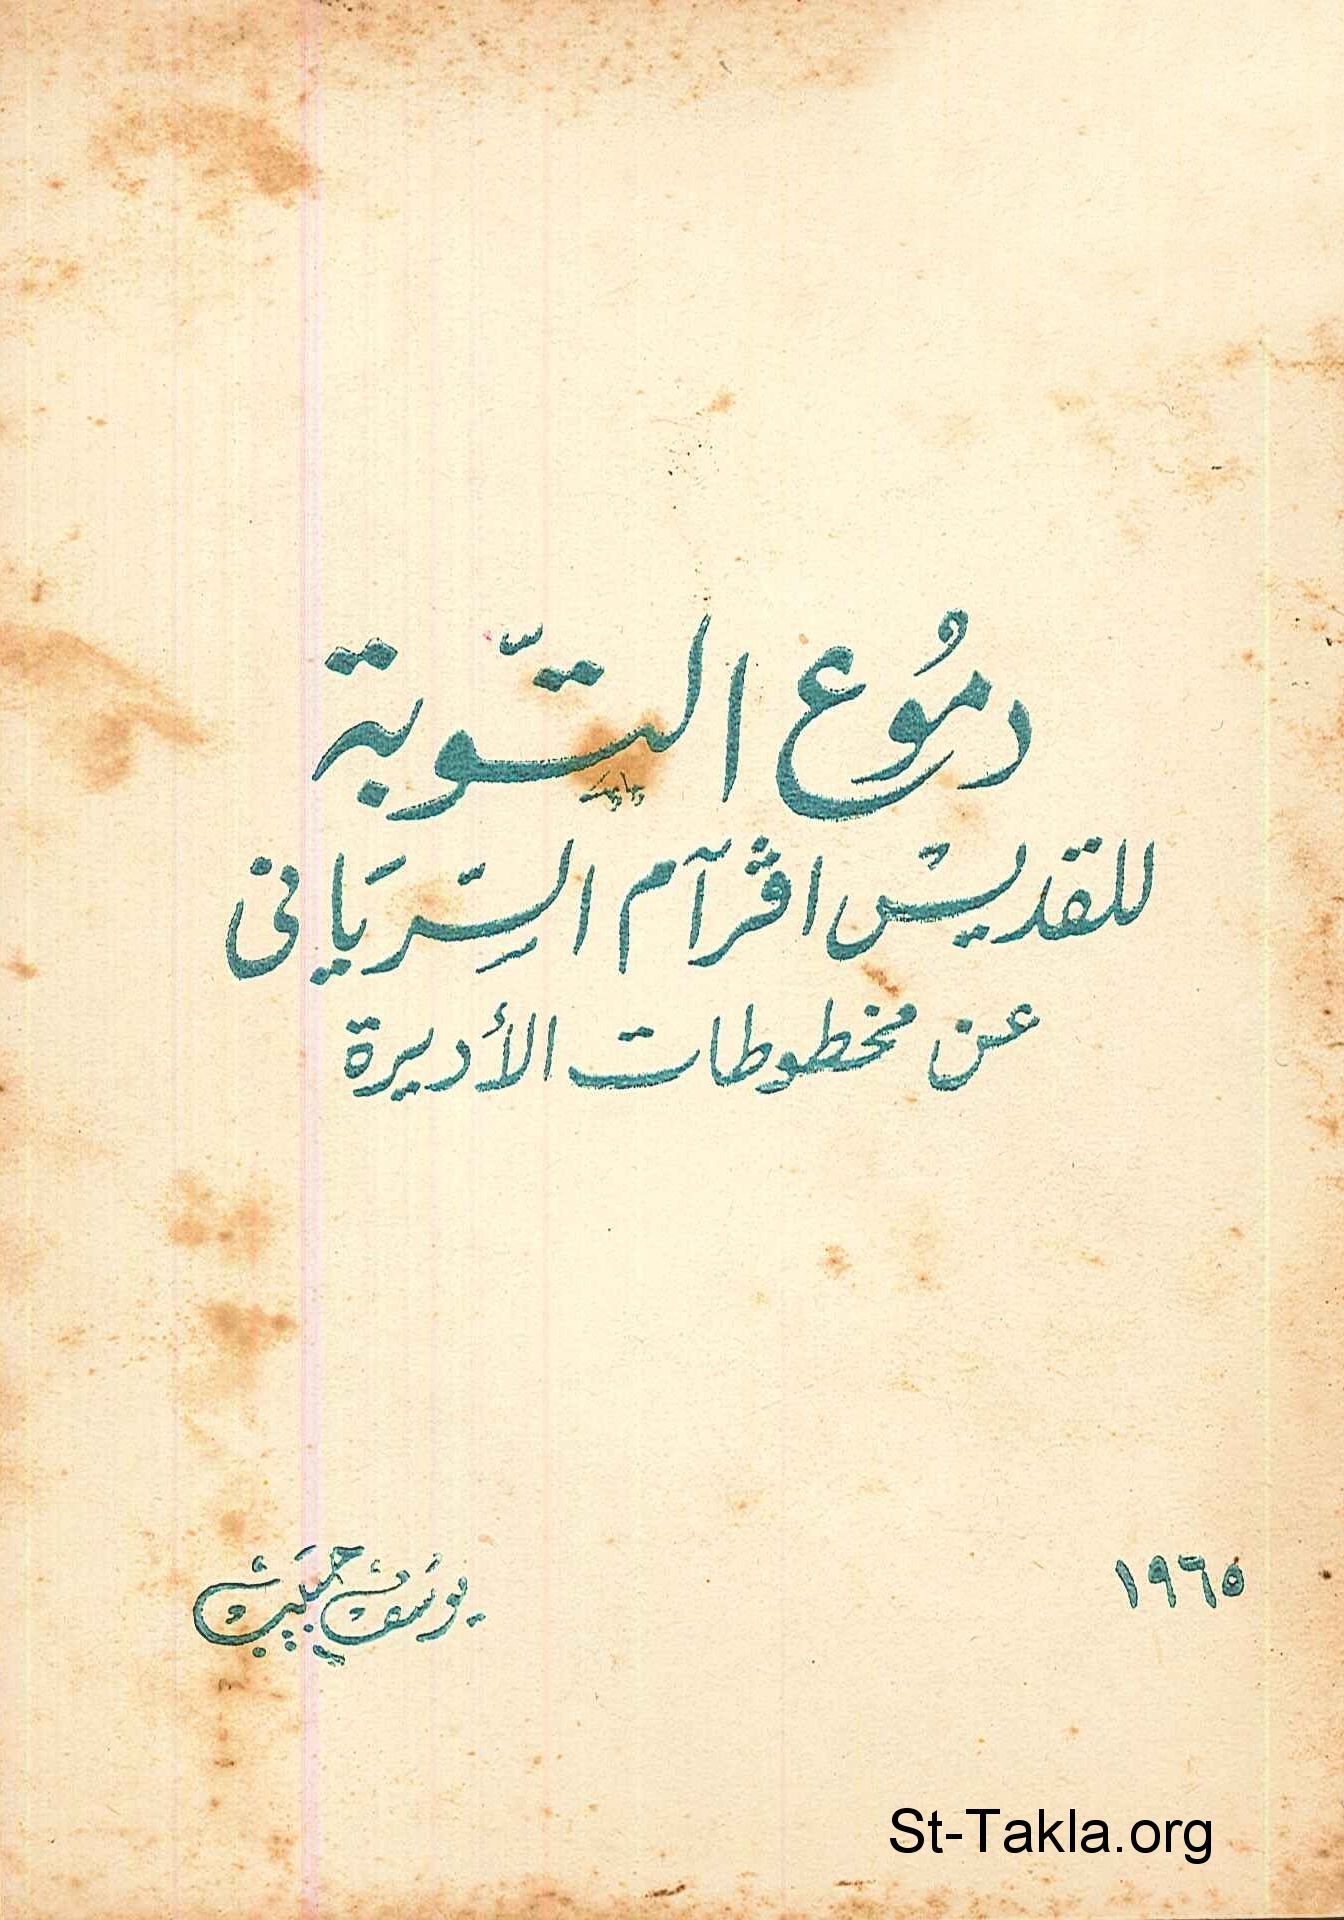 دموُع التّوبة
للقديسْ اڤرآم السِّريَانى
عن مخطوطات الأديرة
١٩٦٥
يوسَف حبَيب
St-Takla.org